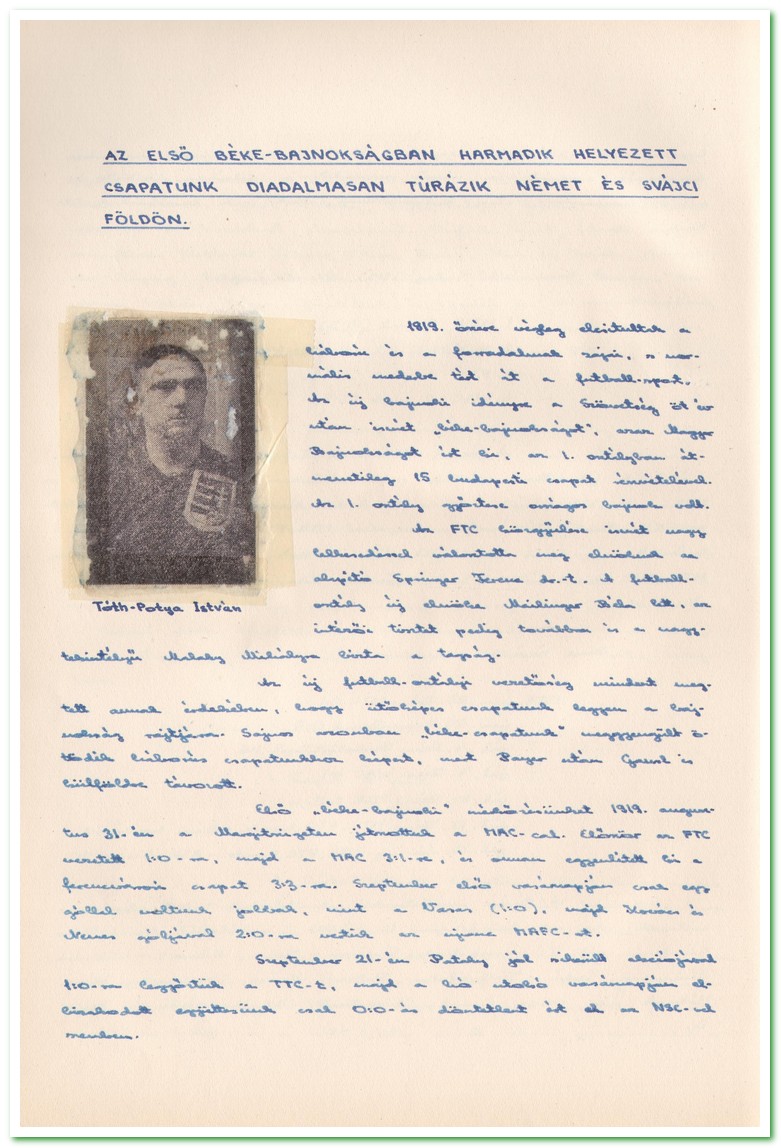 AZ ELSŐ BÉKE-BAJNOKSÁGBAN HARMADIK HELYEZETT
CSAPATUNK DIADALMASAN TÚRÁZIK NÉMET ÉS SVÁJCI
FÖLDÖN.
1919. őszére végleg elcsitultak a
háború és a forradalmak zajai, s nor-
mális mederbe tért át a futball-sport.
Az új bajnoki idényre a Szövetség öt év
után ismét „béke-bajnokságot", azaz Magyar
Bajnokságot írt ki, az I. osztályban út-
nemetileg 15 budapesti csapat részvételével.
Az I. osztály győztese országos bajnok volt.
Az FTC közgyűlése ismét nagy
lelkesedéssel választotta meg elnöknek az
alapító Springer Ferenc dr.-t. A futball-
osztály új elnöke Mailinger Béla lett, az
intézői tisztet pedig továbbra is a nagy-
Tóth-Potya István
tekintélyű Malaky Mihályra bízta a tagság.
Az új futball-osztályi vezetőség mindent meg-
tett annak érdekében, hogy ütőképes csapatunk legyen a baj-
nokság rajtjára. Sajnos azonban „béke-csapatunk" meggyengült ö-
tödik háborús csapatunkhoz képest, mert Payer után Gansl is
külföldre távozott.
Első „béke-bajnoki" mérkőzésünket 1919. augusz-
tus 31-én a Margitszigeten játszottuk a MAC-cal. Először az FTC
vezetett 1:0-ra, majd a MAC 3:1-re, és onnan egyenlített ki a
ferencvárosi csapat 3:3-ra. Szeptember első vasárnapján csak egy
góllal voltunk jobbak, mint a Vasas (1:0), majd Kovács és
Nemes góljaival 2:0-ra vertük az újonc MAFC-ot.
Szeptember 21-én Pataky jól sikerült akciójával
1:0-ra legyőztük a TTC-t, majd a hó utolsó vasárnapján el-
bizakodott együttesünk csak 0:0-ás döntetlent ért el az NSC-vel
szemben.